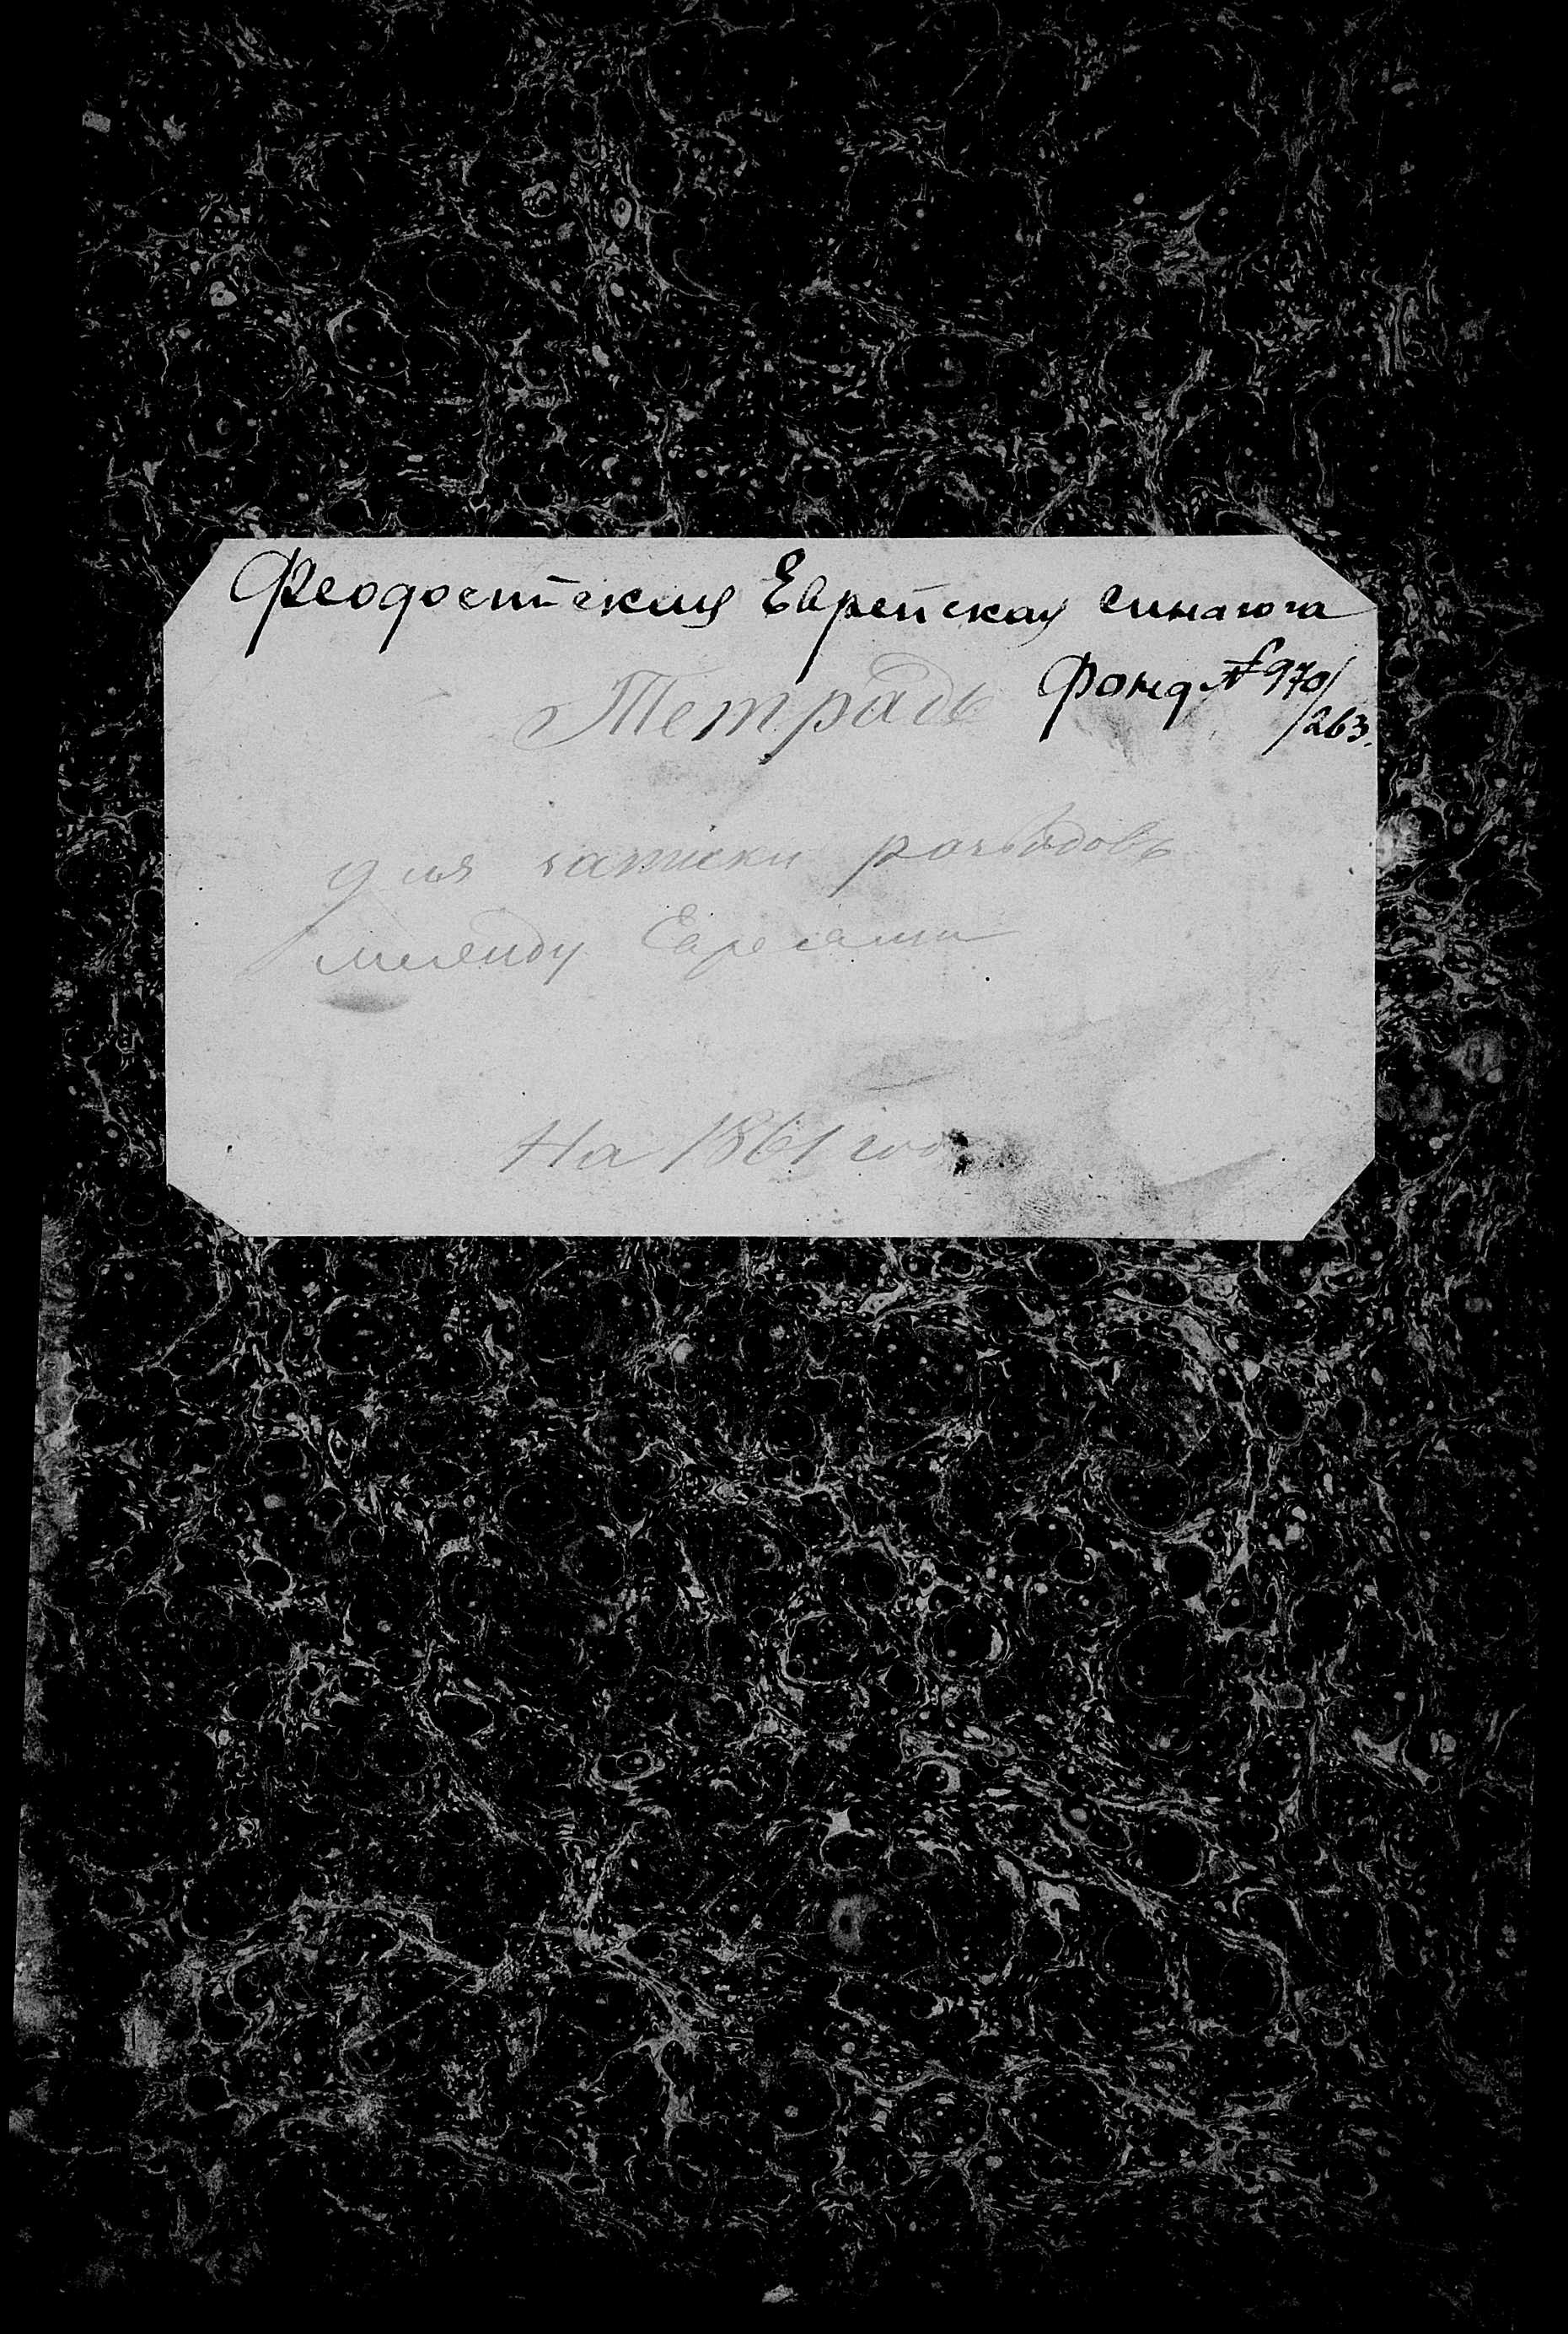 Феодосийская Еврейская синагога
Тетрадь Фонд № 970/
/263.
для записки разводовъ
между Евреями
На 1861 годъ